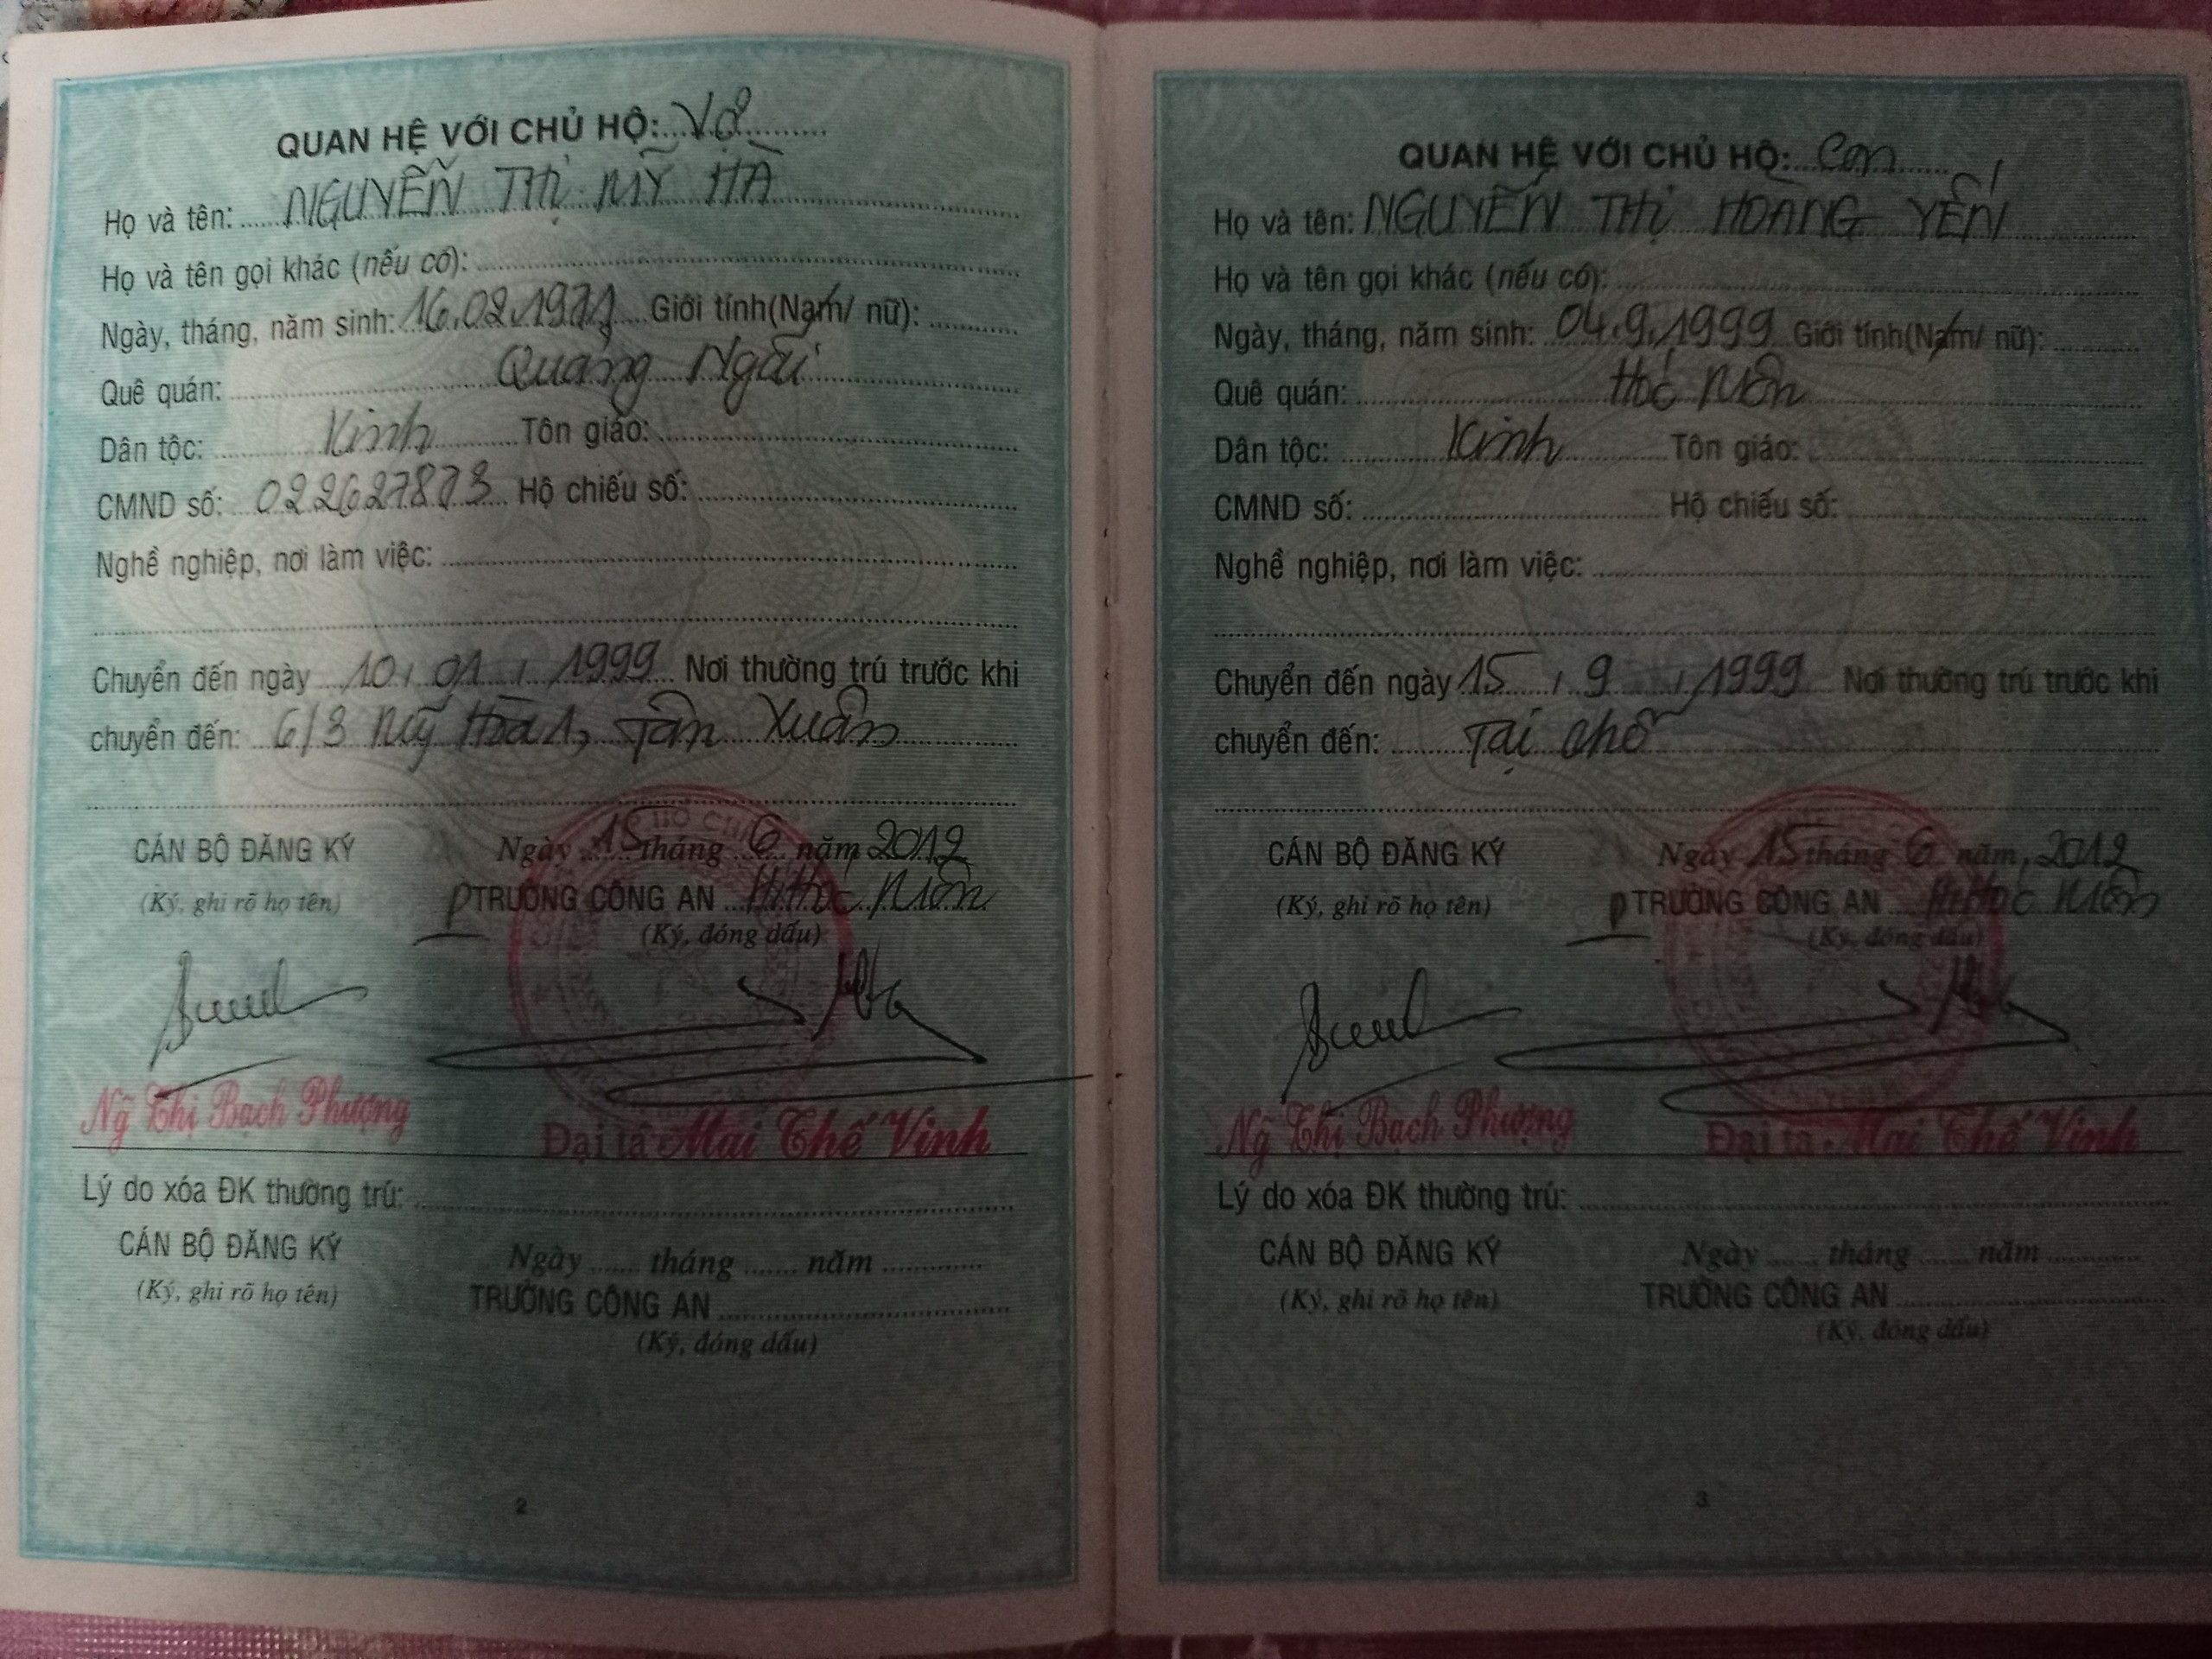 QUAN HỆ VỚI CHỦ HỘ: Vợ
Họ và tên: NGUYỄN THỊ MỸ HÀ
Họ và tên gọi khác (nếu có):
Ngày, tháng, năm sinh: 16.02.1971 Giới tính(Nam/ nữ):
Quê quán: Quảng Ngãi
Dân tộc: Kinh Tôn giáo:
CMND số: 022627873 Hộ chiếu số:
Nghề nghiệp, nơi làm việc:
Chuyển đến ngày 10 / 01 / 1999 Nơi thường trú trước khi
chuyển đến: 6/3 Mỹ Hòa 1, Tân Xuân
CÁN BỘ ĐĂNG KÝ
(Ký, ghi rõ họ tên)
Ngày 15 tháng 6 năm 2012
P TRƯỞNG CÔNG AN H.Hóc Môn
(Ký, đóng dấu)
Ng̃ Thị Bạch Phượng
Đại tá Mai Thế Vinh
Lý do xóa ĐK thường trú:
CÁN BỘ ĐĂNG KÝ
(Ký, ghi rõ họ tên)
Ngày ...... tháng ...... năm ............
TRƯỞNG CÔNG AN
(Ký, đóng dấu)
2
QUAN HỆ VỚI CHỦ HỘ: Con
Họ và tên: NGUYỄN THỊ HOÀNG YẾN
Họ và tên gọi khác (nếu có):
Ngày, tháng, năm sinh: 04.9.1999 Giới tính(Nam/ nữ):
Quê quán: Hóc Môn
Dân tộc: Kinh Tôn giáo:
CMND số: Hộ chiếu số:
Nghề nghiệp, nơi làm việc:
Chuyển đến ngày 15 / 9 / 1999 Nơi thường trú trước khi
chuyển đến: Tại chỗ
CÁN BỘ ĐĂNG KÝ
(Ký, ghi rõ họ tên)
Ngày 15 tháng 6 năm 2012
P TRƯỞNG CÔNG AN H.Hóc Môn
(Ký, đóng dấu)
Ng̃ Thị Bạch Phượng
Đại tá Mai Thế Vinh
Lý do xóa ĐK thường trú:
CÁN BỘ ĐĂNG KÝ
(Ký, ghi rõ họ tên)
Ngày ...... tháng ...... năm ............
TRƯỞNG CÔNG AN
(Ký, đóng dấu)
3